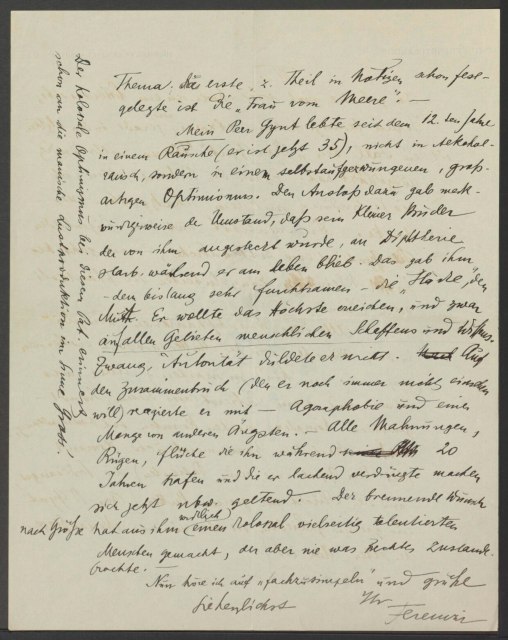 Thema. Das erste, z. Theil in Notizen schon fest-
gelegte ist die „Frau vom Meere". —
Mein Peer Gynt lebte seit dem 12. ten Jahre
in einem Rausche (er ist jetzt 35), nicht in Alkohol-
rausch, sondern in einem selbstaufgezwungenen, groß-
artigen Optimismus. Den Anstoß dazu gab merk-
würdigerweise der Umstand, daß sein kleiner Bruder
der von ihm angesteckt wurde, an Diphtherie
starb, während er am Leben blieb. Das gab ihm
– dem bislang sehr furchtsamen – die
Muth. Er wollte das Höchste erreichen, und zwar
auf allen Gebieten menschlichen Schaffens und
Zwang, Autorität duldete er nicht. Auf
den Zusammenbruch (den er noch immer nicht einsehen
will) reagierte er mit — Agoraphobie und einer
Menge von anderen Ängsten. – Alle Mahnungen,
Rügen, Flüche die ihn während 20
Jahren trafen und die er lachend verdrängte machen
sich jetzt geltend. Der brennende Wunsch
nach Größe hat aus ihm wirklich einen kolossal vielseitig talentierten
Menschen gemacht, der aber nie was Rechtes zustande
brachte. –
Nun höre ich auf „fachzusimpeln" und grüße
Sie herzlichst
Ihr
Ferenczi
Der kolossale Optimismus bei diesem Pat. erinnert
schon an die manische Lustproduktion im Sinne Gross'.